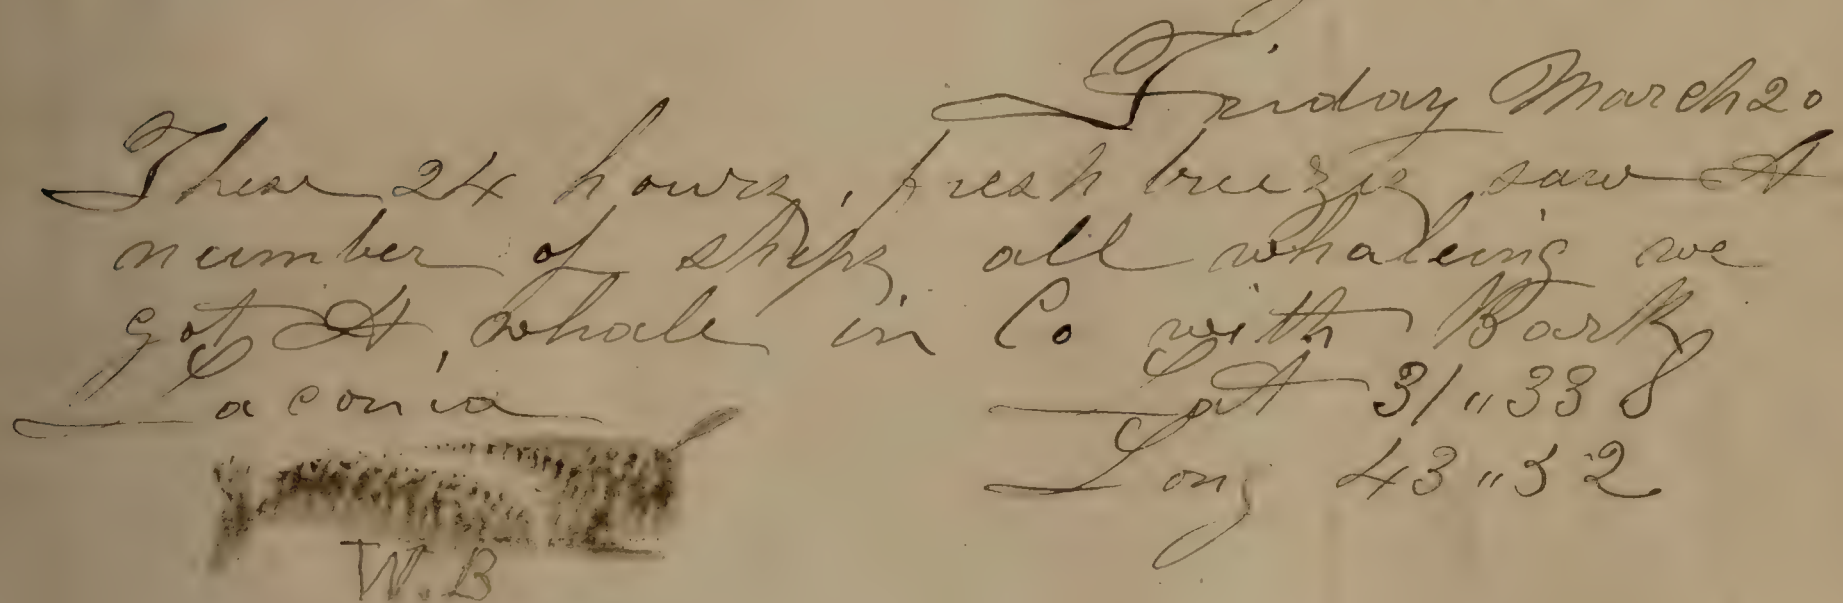 Friday March 20
These 24 hours, fresh breezes saw A
number of ships all whaleing we
got A, whale in Co with Bark
Laconia
Lat 31"33 S
Long 43"52
W.B